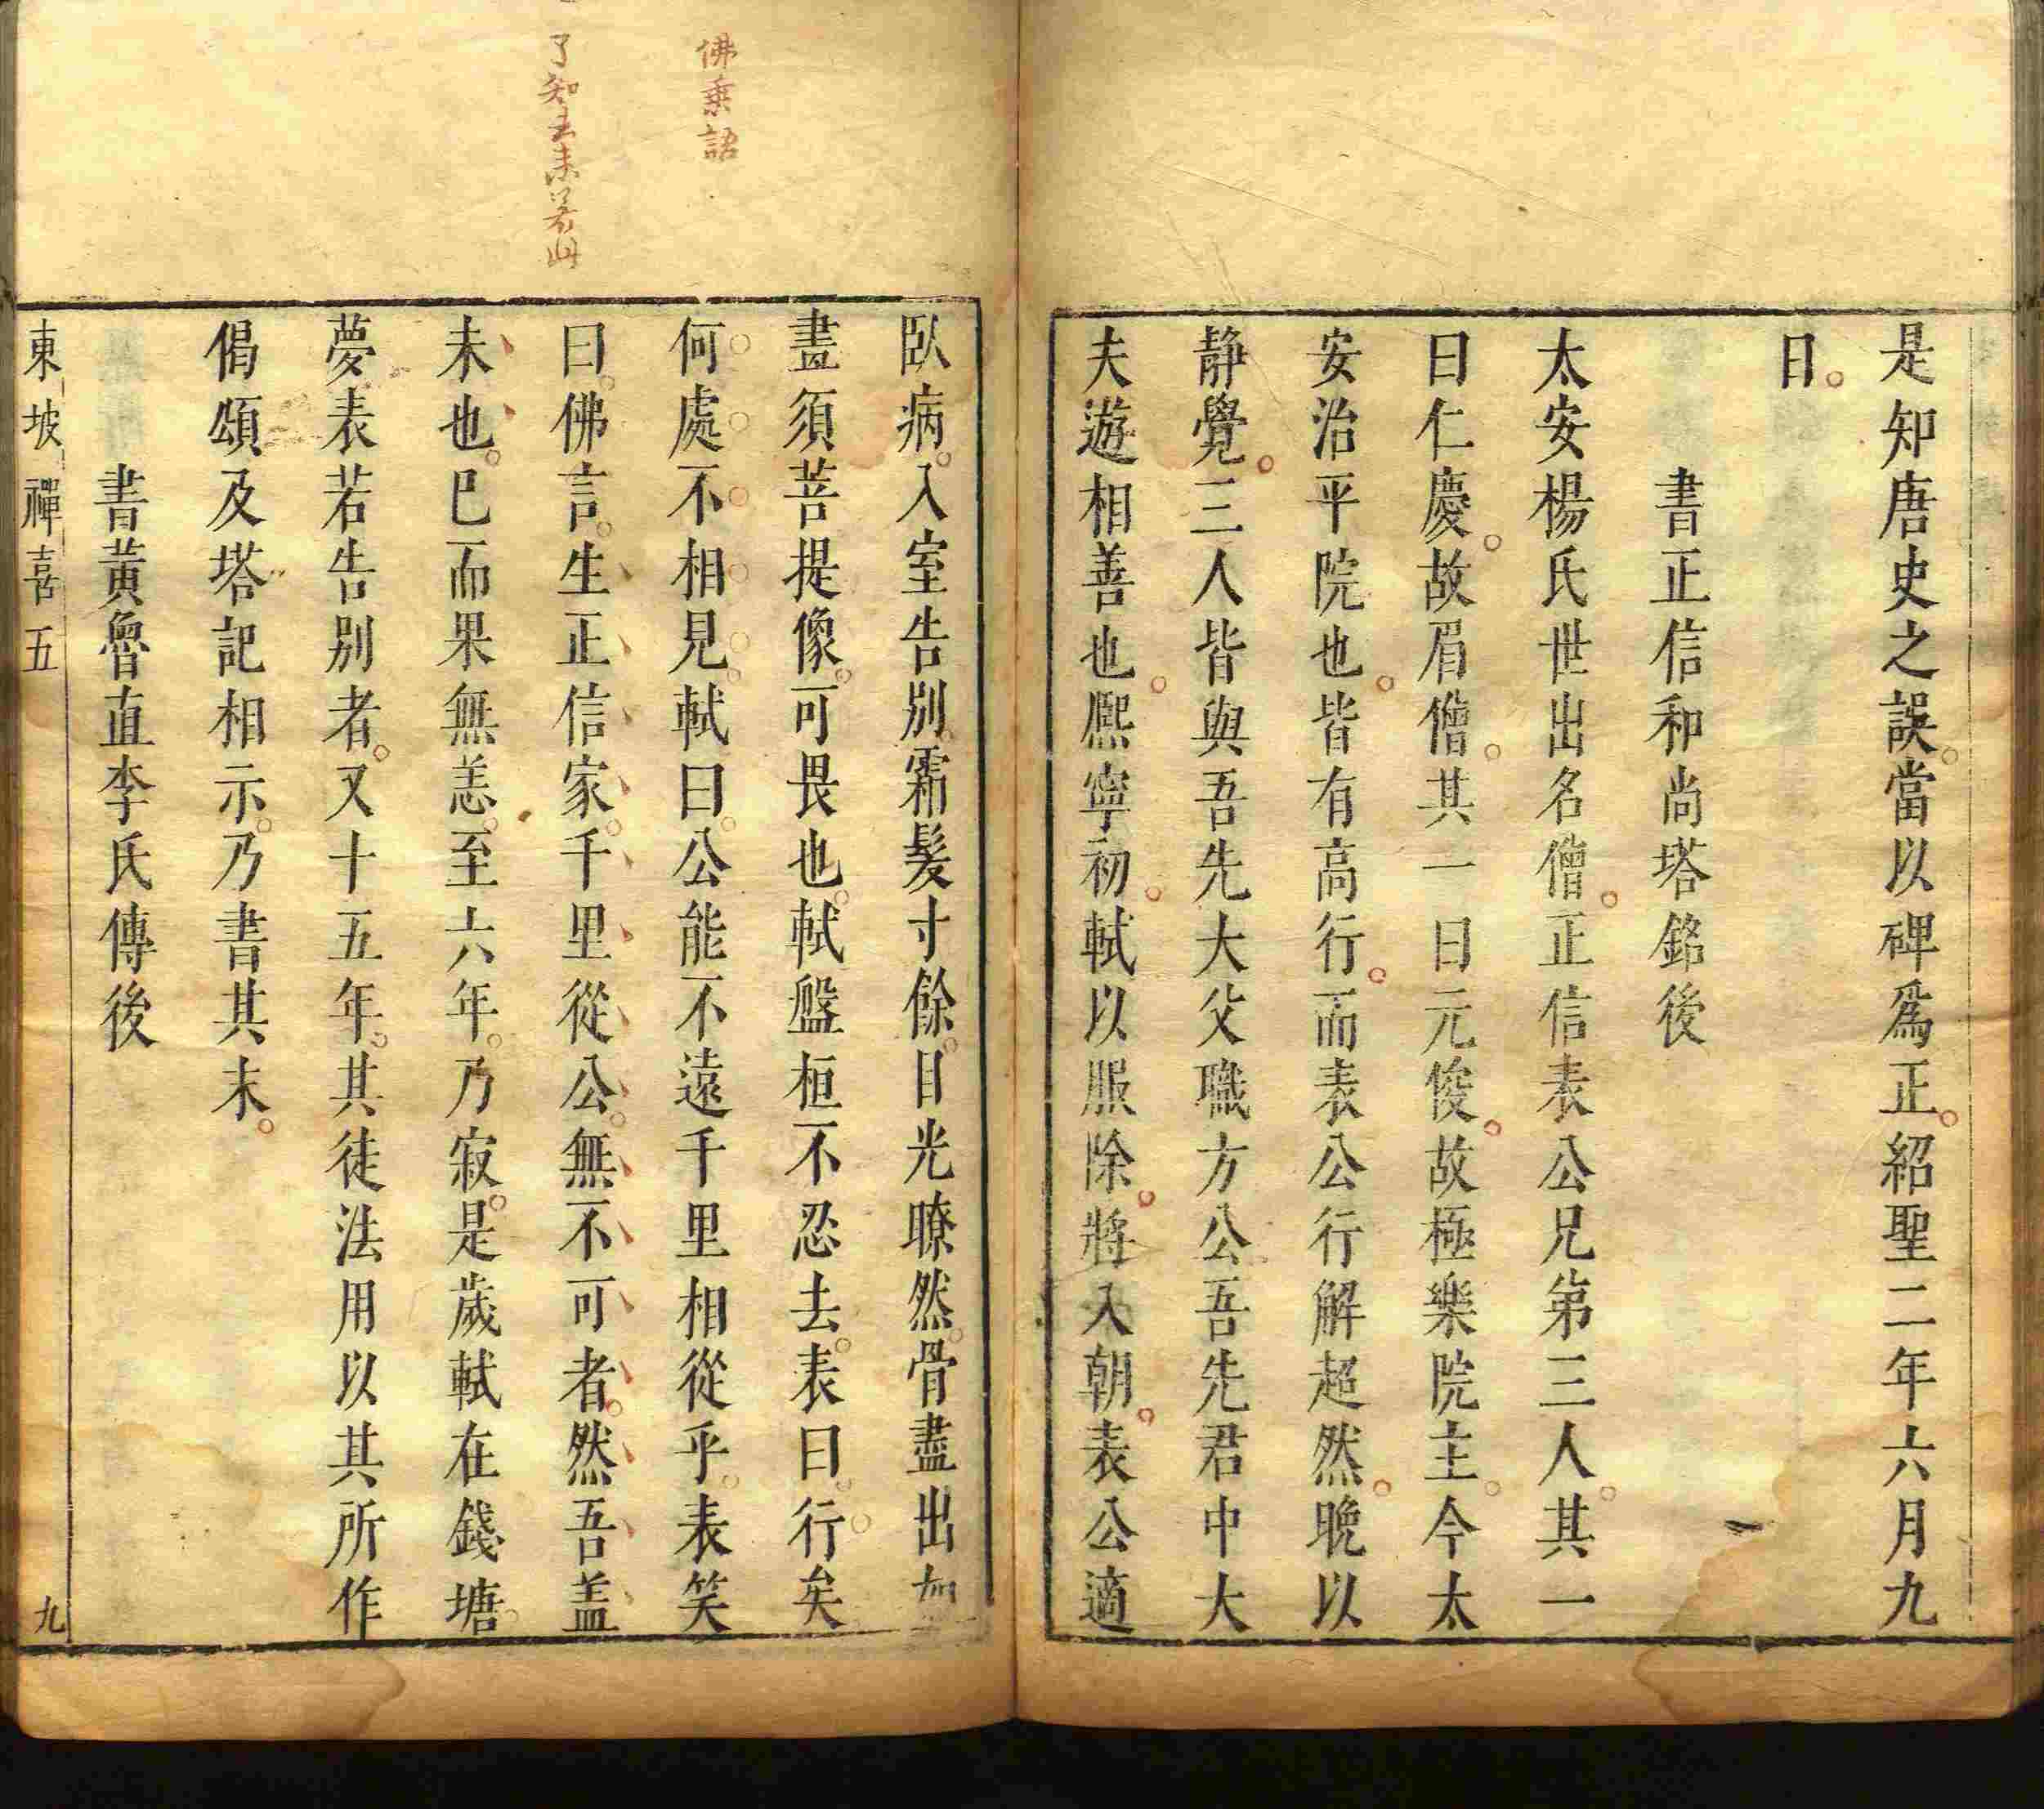 是知唐史之誤。當以碑爲正。紹聖二年六月九
日。
書正信和尚塔銘後
太安楊氏世出名僧。正信表公兄弟三人。其一
曰仁慶。故眉僧。其一曰元俊。故極樂院主。今太
安治平院也。皆有高行。而表公行解超然。晚以
靜覺。三人皆與吾先大父職方公吾先君中大
夫遊相善也。熈寧初。軾以服除。將入朝。表公適
臥病。入室告別。霜髮寸餘。目光瞭然。骨盡出如
畫須菩提像。可畏也。軾盤桓不忍去。表曰。行矣。
何處不相見。軾曰。公能不遠千里相從乎。表笑
曰。佛言。生正信家。千里從公。無不可者。然吾盖
未也。巳而果無恙。至六年。乃寂。是歲軾在錢塘。
夢表若告別者。又十五年。其徒法用以其所作
偈頌及塔記相示。乃書其末。
書黃魯直李氏傳後
東坡禪喜五
九
佛乗語
了知去来若此